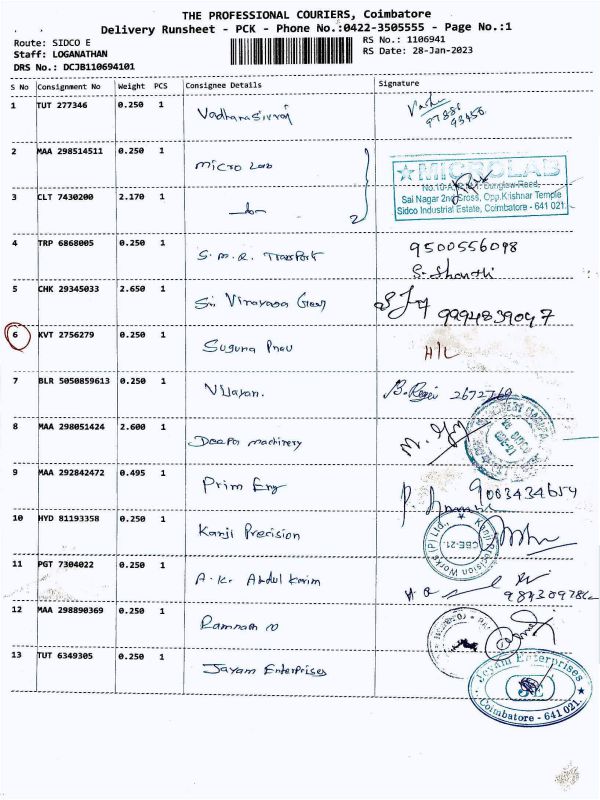 THE PROFESSIONAL COURIERS, Coimbatore
Delivery Runsheet - PCK - Phone No.:0422-3505555 - Page No.:1
Route: SIDCO E
RS No.: 1106941
Staff: LOGANATHAN
RS Date: 28-Jan-2023
DRS No.: DCJB110694101
S No Consignment No Weight PCS Consignee Details Signature
1 TUT 277346 0.250 1
2 MAA 298514511 0.250 1 Micro Lab
MICROLAB
Sai Nagar 2nd Cross, Opp.Krishnar Temple
Sidco Industrial Estate, Coimbatore - 641 021.
3 CLT 7430200 2.170 1 2
4 TRP 6868005 0.250 1 S.M.R. Transport 9500556098
S. Shanthi
5 CHK 29345033 2.650 1 9994839047
6 KVT 2756279 0.250 1 Suguna H/L
7 BLR 5050859613 0.250 1 Vijayan. 2672769
8 MAA 298051424 2.600 1 machinery
9 MAA 292842472 0.495 1 Prim Eng 9003434654
10 HYD 81193358 0.250 1 Kanji Precision
Kanji Precision Works (P) Ltd.,
CBE-21.
11 PGT 7304022 0.250 1 A.K. Abdul Karim
12 MAA 298890369 0.250 1 Ramnath
13 TUT 6349305 0.250 1 Jayam Enterprises
Jayam Enterprises
JE
Coimbatore - 641 021.